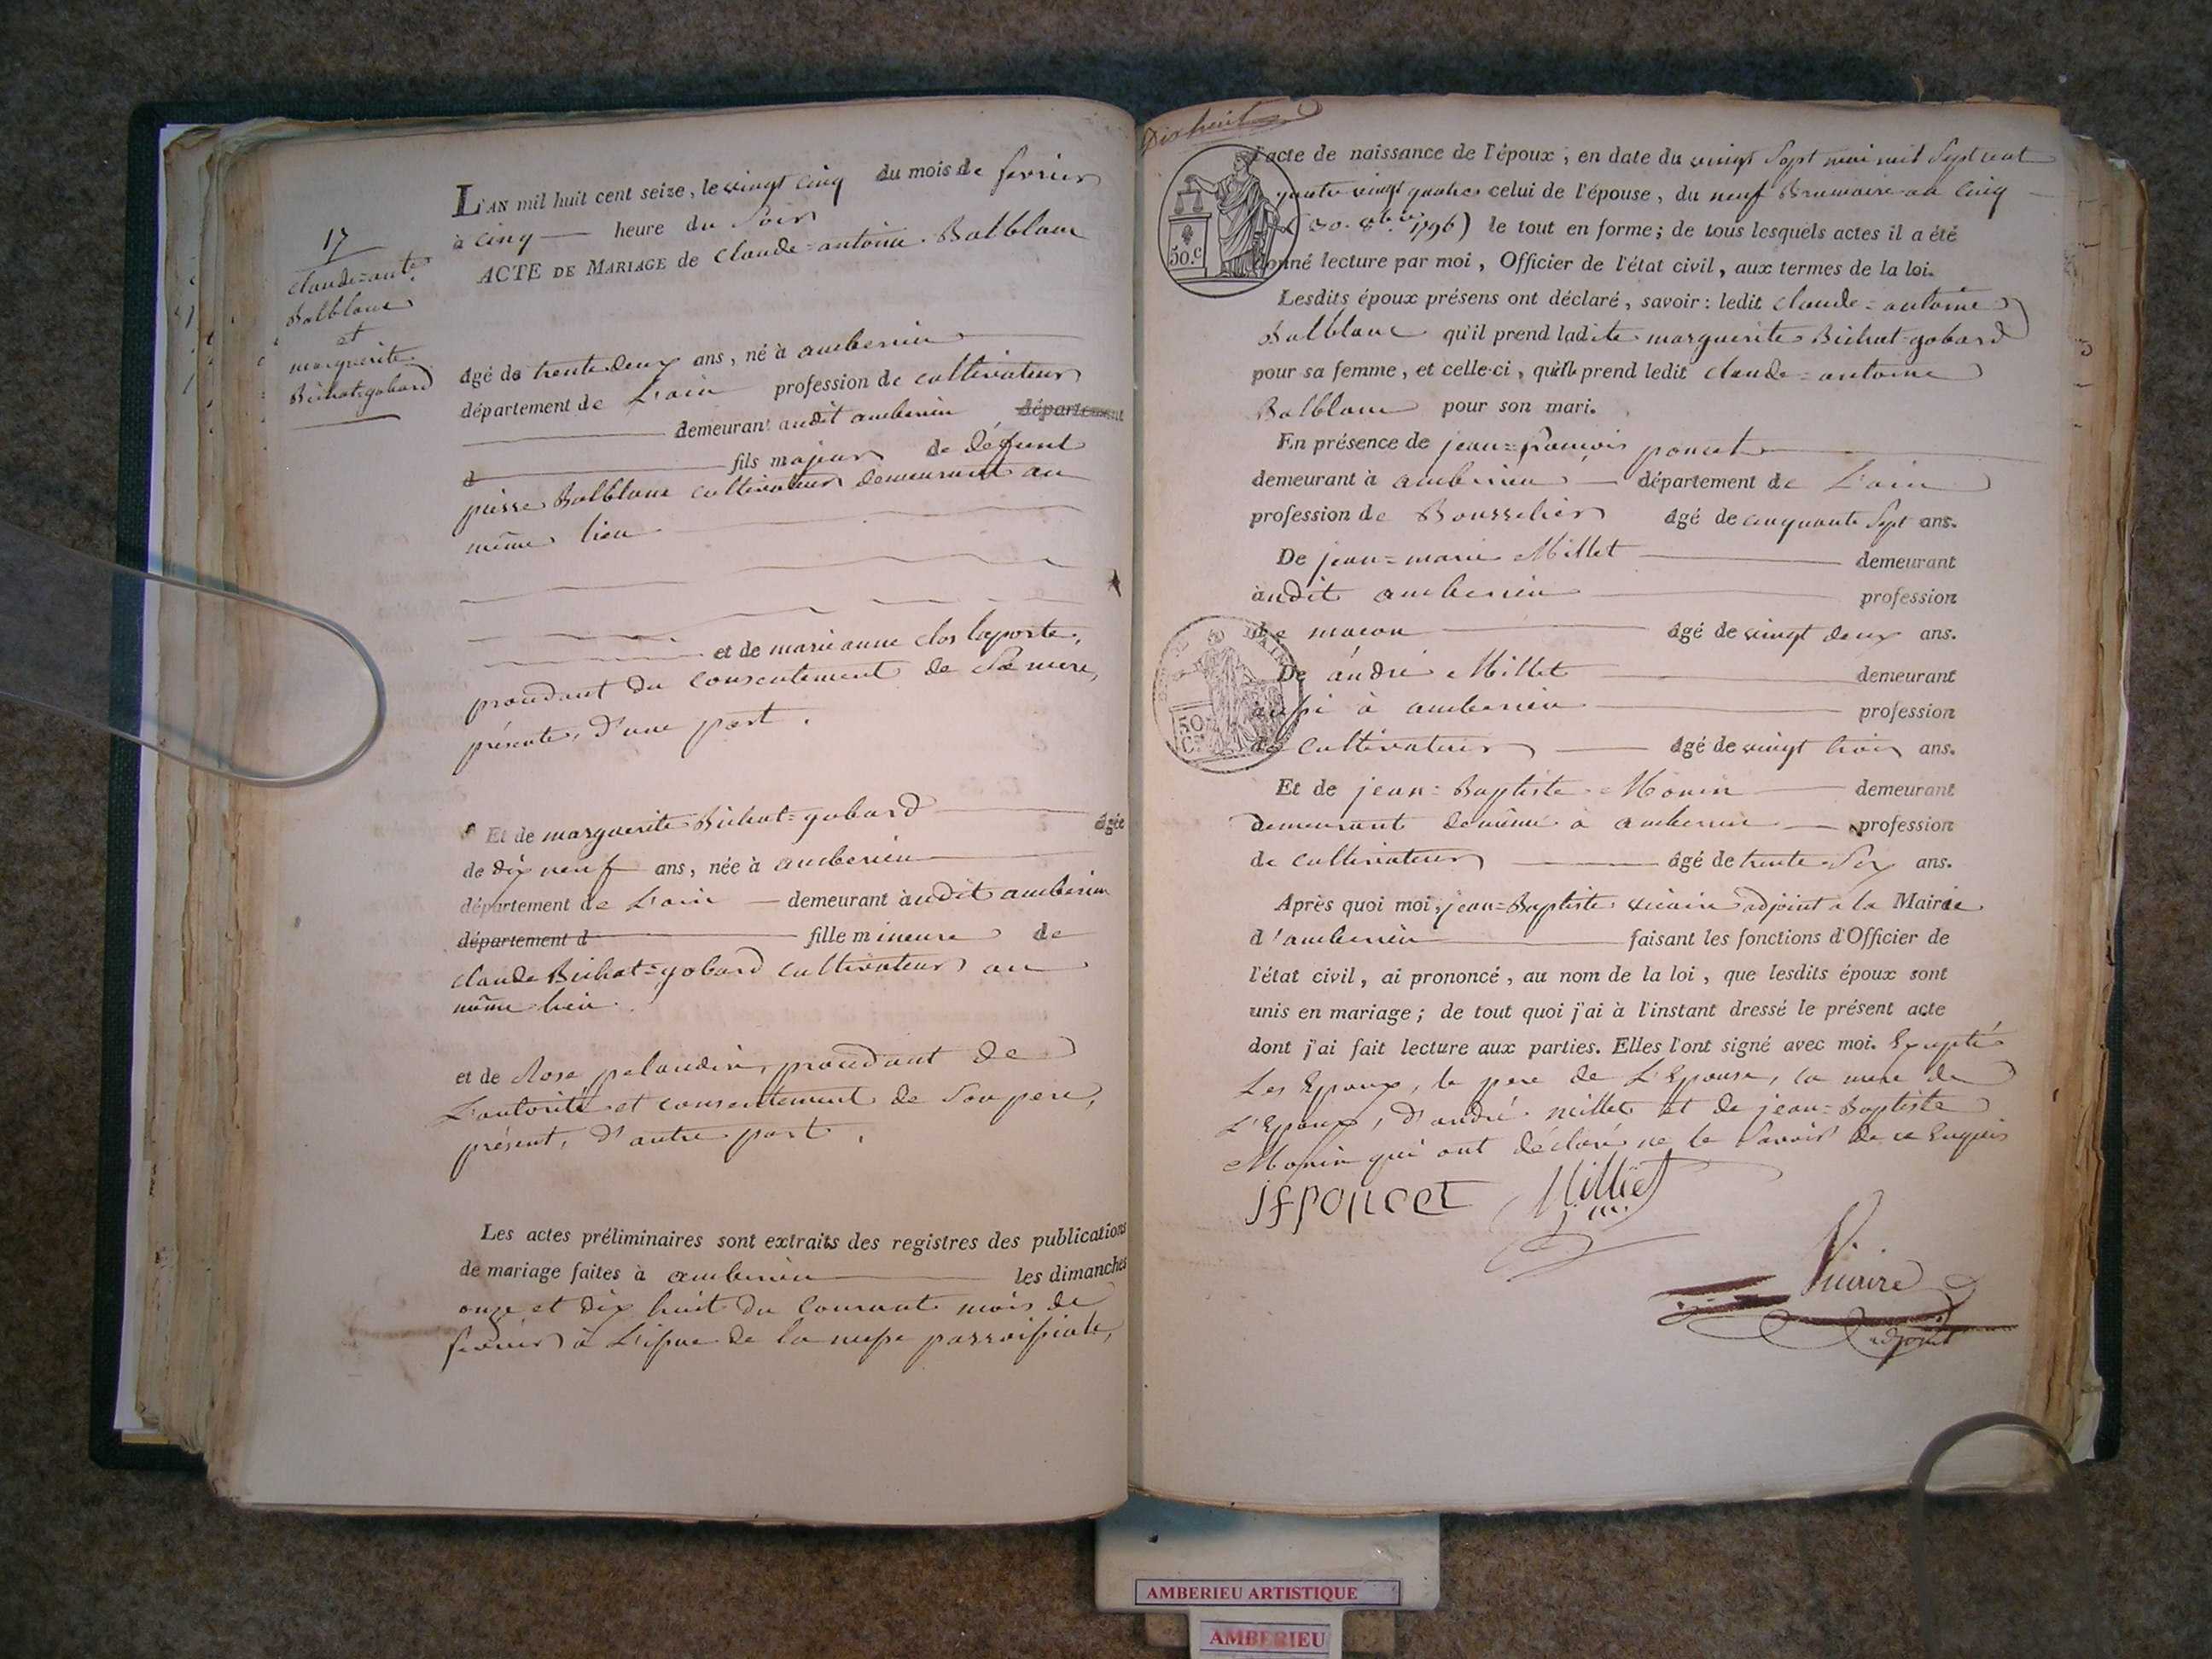 17
claude=ante
Balblanc
et
marguerite
Bichat=gobard
L'AN mil huit cent seize, le vingt cinq du mois de fevrier
à cinq heure du Soir
ACTE DE MARIAGE de Claude=antoine Balblanc
âgé de trente deux ans, né à amberieu
département de L'ain profession de cultivateur
demeurant audit amberieu département
d fils majeur de défunt
pierre Balblanc cultivateur demeurant au
même lieu
et de marieanne clos laporte,
procedant du consentement de Sa mere,
présente, d'une part.
Et de marguerite Bichat=gobard âgée
de dix neuf ans, née à amberieu
département de L'ain demeurant audit amberieu
département d fille mineure de
claude Bichat=gobard cultivateur au
même lieu.
et de Rose pelaudin, procedant de
L'autorité et consentement de Son pere,
présent, d'autre part.
Les actes préliminaires sont extraits des registres des publications
de mariage faites à amberieu les dimanches
onze et dix huit du Courant mois de
fevrier à L'issue de la messe parroissiale,
Dix huit
l'acte de naissance de l'époux ; en date du vingt Sept mai mil Sept cent
quatre vingt quatre celui de l'épouse, du neuf Brumaire an Cinq
(30. 8bre 1796) le tout en forme; de tous lesquels actes il a été
donné lecture par moi, Officier de l'état civil, aux termes de la loi.
50.c
Lesdits époux présens ont déclaré, savoir : ledit claude=antoine
Balblanc qu'il prend ladite marguerite Bichat=gobard
pour sa femme, et celle-ci, qu'elle prend ledit claude=antoine
Balblanc pour son mari.
En présence de jean=francois poncet
demeurant à amberieu département de L'ain
profession de Bourrelier âgé de cinquante Sept ans.
De jean=marie Millet demeurant
audit amberieu profession
de macon âgé de vingt deux ans.
De andré Millet demeurant
aussi à amberieu profession
50
C.
de cultivateur âgé de vingt trois ans.
Et de jean=Baptiste Monin demeurant
demeurant de même à amberieu profession
de cultivateur âgé de trente Six ans.
Après quoi moi, jean=Baptiste vicaire adjoint a la Mairie
d'amberieu faisant les fonctions d'Officier de
l'état civil, ai prononcé, au nom de la loi, que lesdits époux sont
unis en mariage ; de tout quoi j'ai à l'instant dressé le présent acte
dont j'ai fait lecture aux parties. Elles l'ont signé avec moi. Excepté
Les Epoux, le pere de L'Epouse, la mere de
L'Epoux, d'andré millet et de jean=Baptiste
Monin qui ont déclaré ne le Savoir de ce Enquis
jfponcet Milliet
j m.
Vicaire
adjoint
AMBERIEU ARTISTIQUE
AMBERIEU